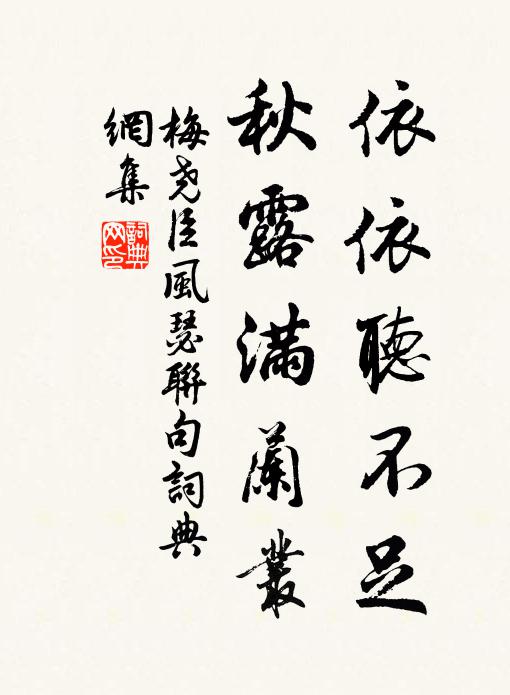 依依聽不足
秋露滿蘭叢
梅堯臣風瑟聯句詞典
網集
詞典
网印